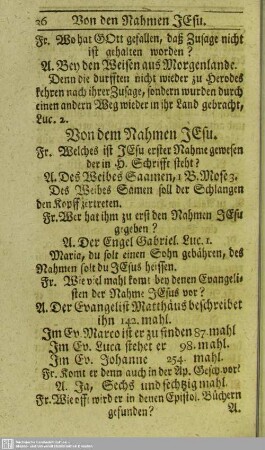 26 Von den Nahmen JEsu.
Fr. Wo hat GOtt gefallen, daß Zusage nicht
ist gehalten worden?
A. Bey den Weisen aus Morgenlande.
Denn die durfften nicht wieder zu Herodes
kehren nach ihrer Zusage, sondern wurden durch
einen andern Weg wieder in ihr Land gebracht,
Luc. 2.
Von dem Nahmen JEsu.
Fr. Welches ist JEsu erster Nahme gewesen
der in H. Schrifft steht?
A. Des Weibes Saamen, 1 B. Mose 3.
Des Weibes Samen soll der Schlangen
den Kopff zertreten.
Fr. Wer hat ihm zu erst den Nahmen JEsu
gegeben?
A. Der Engel Gabriel. Luc. 1.
Maria, du solt einen Sohn gebähren, des
Nahmen solt du JEsus heissen.
Fr. Wie viel mahl komt bey denen Evangeli-
sten der Nahme JEsus vor?
A. Der Evangelist Matthäus beschreibet
ihn 142. mahl.
Im Ev. Marco ist er zu finden 87. mahl
Im Ev. Luca stehet er 98. mahl.
Im Ev. Johanne 254. mahl.
Fr. Komt er denn auch in der Ap. Gesch. vor?
A. Ja, Sechs und sechzig mahl.
Fr. Wie offt wird er in denen Epistol. Büchern
gefunden?
A.